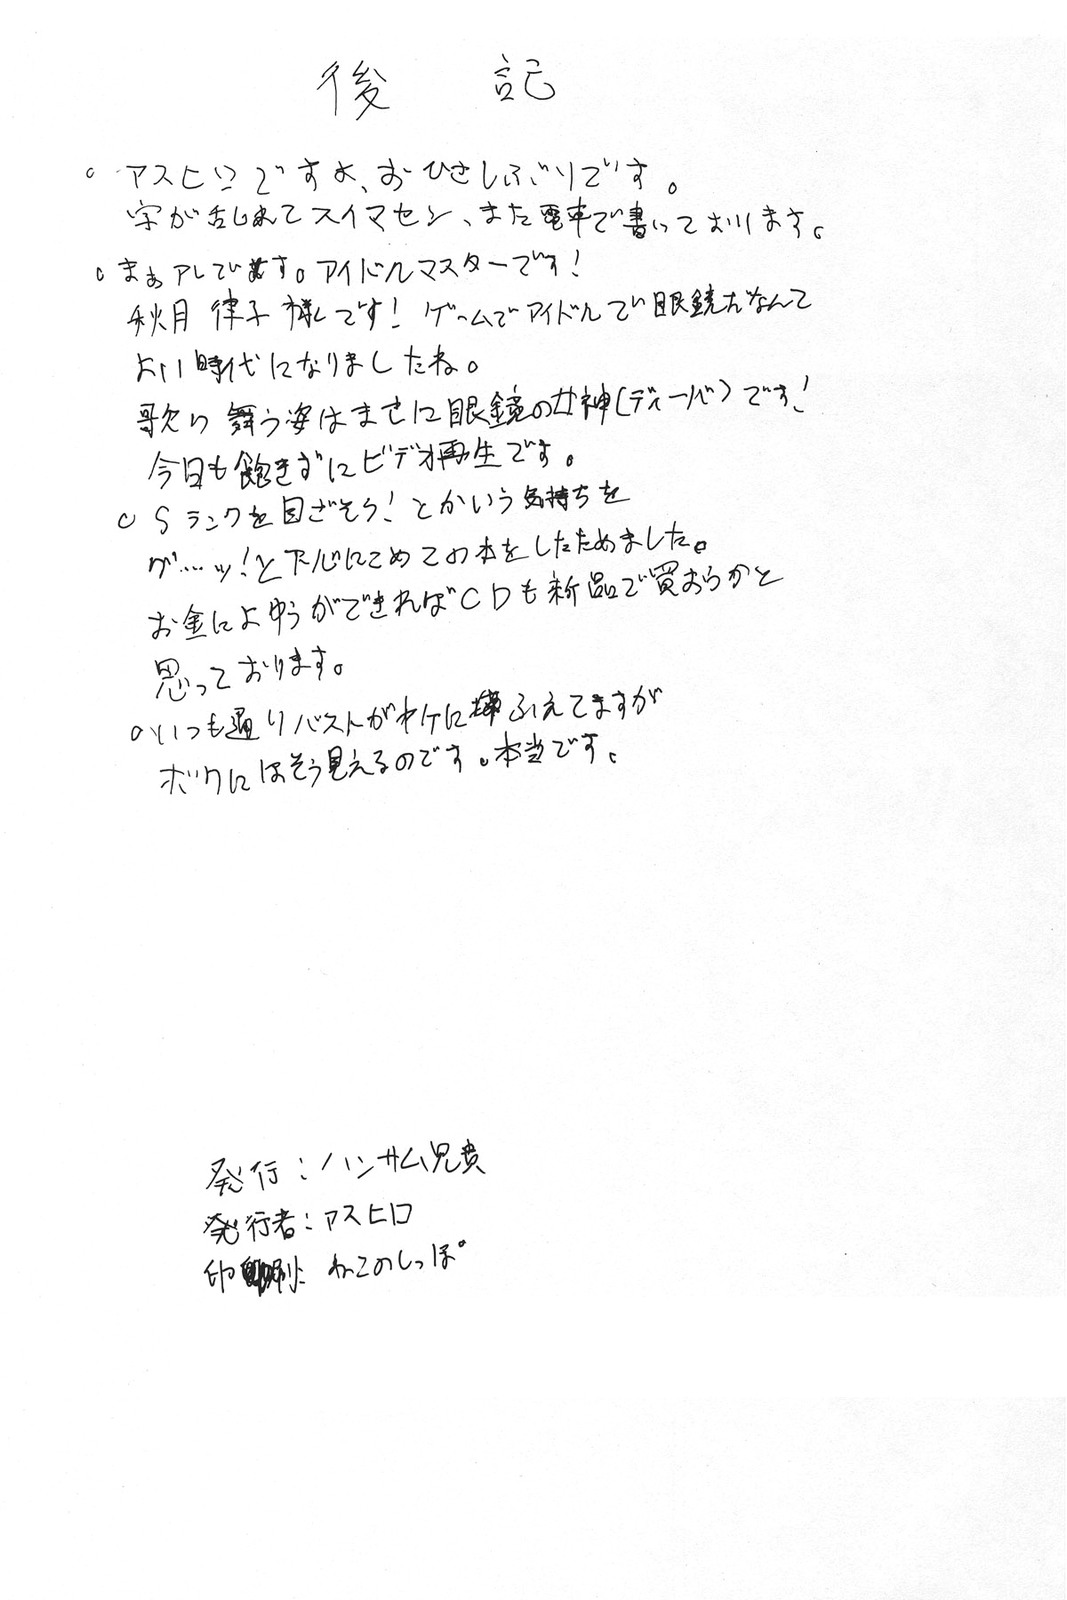 後記
○アスヒロですよ、おひさしぶりです。
字が乱れてスイマセン、また電車で書いております。
○まぁアレです。アイドルマスターです！
秋月律子様です！ゲームでアイドルで眼鏡だなんて
よい時代になりましたね。
歌い舞う姿はまさに眼鏡の女神（ディーバ）です！
今日も飽きずにビデオ再生です。
○Sランクを目ざそう！とかいう気持ちを
グ…ッ！と下心にこめてこの本をしたためました。
お金によゆうができればCDも新品で買おうかと
思っております。
○いつも通りバストがヤケにふえてますが
ボクにはそう見えるのです。本当です。
発行：ハンサム兄貴
発行者：アスヒロ
印刷：ねこのしっぽ